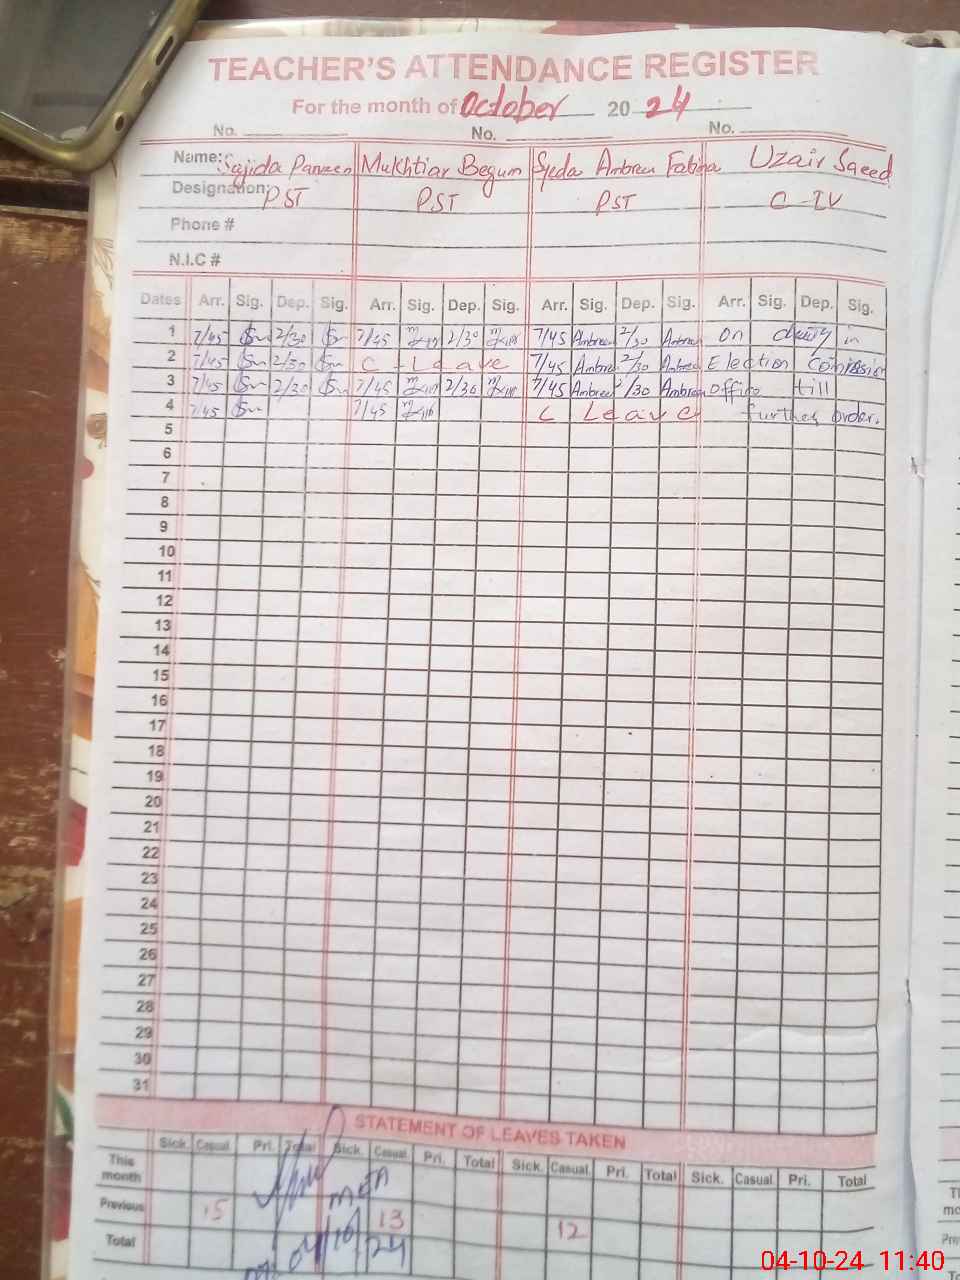 TEACHER'S ATTENDANCE REGISTER
For the month of October 2024
No. No. No.
Name: Sajida Parveen Mukhtiar Begum Syeda Ambreen Fatima Uzair Saeed
Designation: PST PST PST C-IV
Phone #
N.I.C #
Dates Arr. Sig. Dep. Sig. Arr. Sig. Dep. Sig. Arr. Sig. Dep. Sig. Arr. Sig. Dep. Sig.
1 7/45 2/30 7/45 2/30 7/45 Ambreen 2/30 Ambreen On duty in
2 7/45 2/30 C - Leave 7/45 Ambreen 2/30 Ambreen Election Commission
3 7/45 2/30 7/45 2/30 7/45 Ambreen 2/30 Ambreen office till
4 7/45 7/45 C Leave further order.
5
6
7
8
9
10
11
12
13
14
15
16
17
18
19
20
21
22
23
24
25
26
27
28
29
30
31
STATEMENT OF LEAVES TAKEN
Sick. Casual. Pri. Total Sick. Casual. Pri. Total Sick. Casual. Pri. Total Sick. Casual. Pri. Total
This month
Previous 15 13 12
Total
MEA
04/10/24
04-10-24 11:40